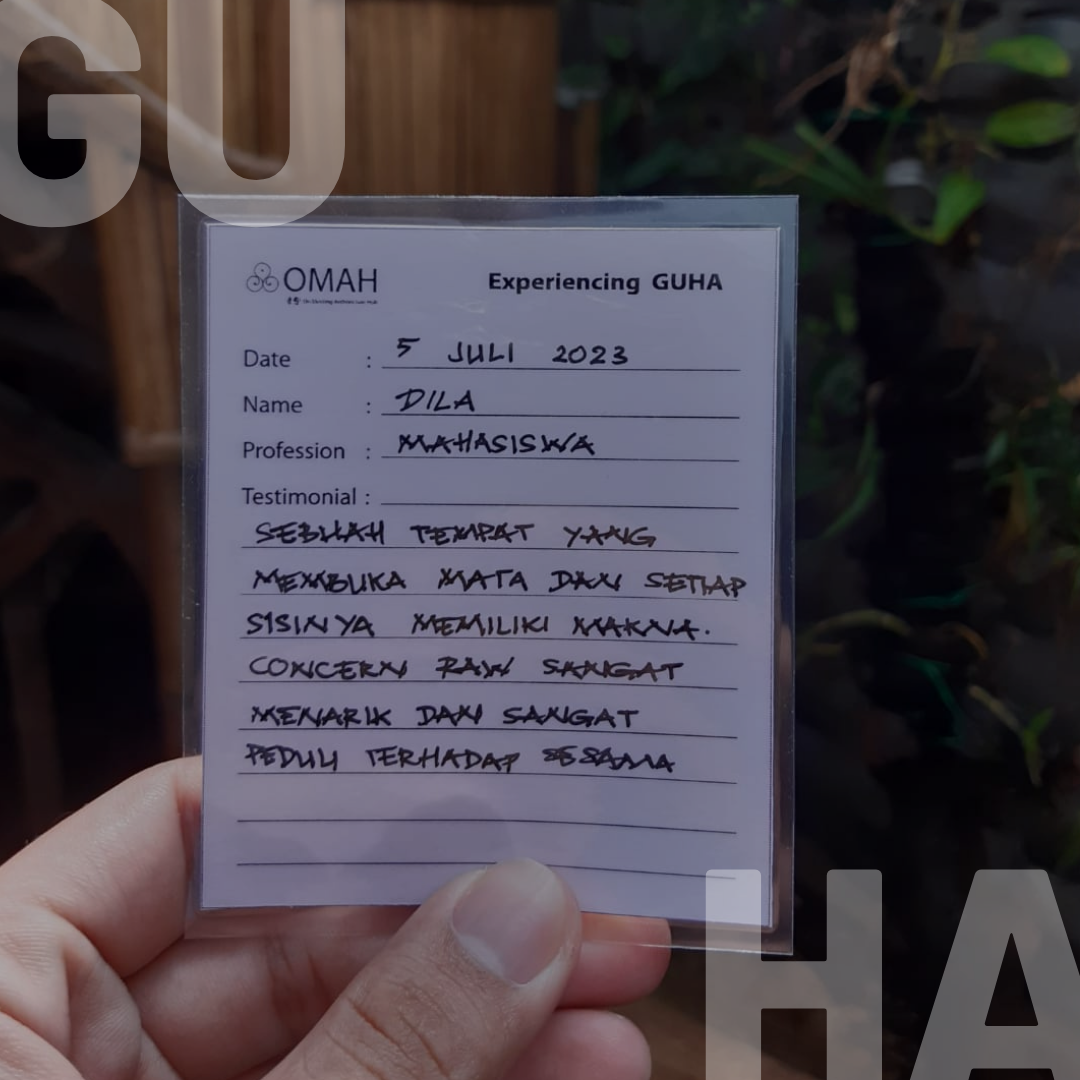 GU
OMAH
Experiencing GUHA
Date : 5 JULI 2023
Name : DILA
Profession : MAHASISWA
Testimonial :
SEBUAH TEMPAT YANG
MEMBUKA MATA DAN SETIAP
SISINYA MEMILIKI MAKNA.
CONCERN RAW SANGAT
MENARIK DAN SANGAT
PEDULI TERHADAP SESAMA
HA